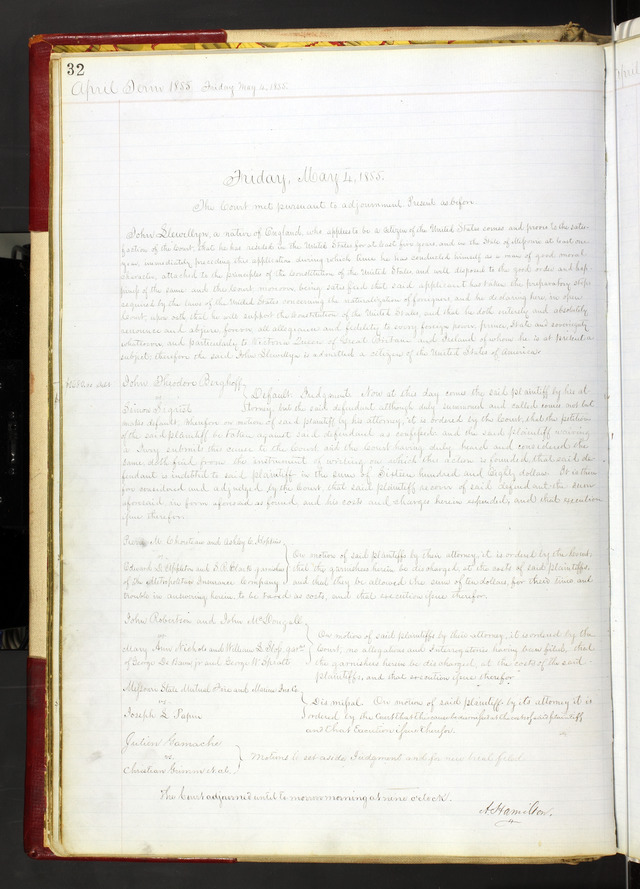 32
April Term 1855. Friday May 4, 1855.
April
Friday, May 4, 1855.
The Court met pursuant to adjournment Present as before.
John Llewellyn, a native of England, who applies to be a citizen of the United States comes and proves to the satis-
faction of the Court that he has resided in the United States for at least five years and in the State of Missouri at least one
year immediately preceding this application during which time he has conducted himself as a man of good moral
character, attached to the principles of the Constitution of the United States and well disposed to the good order and hap-
piness of the same and the Court moreover being satisfied that said applicant has taken the preparatory steps
required by the laws of the United States concerning the naturalization of foreigners, and he declaring here, in open
Court, upon oath that he will support the Constitution of the United States, and that he doth entirely and absolutely
renounce and abjure forever all allegiance and fidelity to every foreign power, prince, State and sovereignty
whatsoever and particularly to Victoria Queen of Great Britain and Ireland of whom he is at present a
subject; therefore the said John Llewellyn is admitted a citizen of the United States of America.
John Theodore Berghoff
vs
Simon Sigrist
Default. Judgment. Now at this day comes the said plaintiff by his at-
torney, but the said defendant although duly summoned and called comes not but
makes default. Therefore on motion of said plaintiff by his attorney, it is ordered by the Court, that the petition
of the said plaintiff be taken against said defendant as confessed and the said plaintiff waiving
a Jury submits this cause to the Court and the Court having duly heard and considered the
same doth find from the instrument of writing on which this action is founded, that said de-
fendant is indebted to said plaintiff in the sum of Sixteen hundred and Eighty dollars. It is there-
fore considered and adjudged by the Court, that said plaintiff recover of said defendant the sum
aforesaid in form aforesaid as found and his costs and charges herein expended, and that execution
issue therefor.
Chouteau and Ashley C. Hopkins
vs
Edward D. Appleton and garnishees
of the Metropolitan Insurance Company
On motion of said plaintiffs by their attorney, it is ordered by the Court,
that the garnishees herein be discharged, at the costs of said plaintiffs,
and that they be allowed the sum of ten dollars, for their time and
trouble in answering herein, to be taxed as costs, and that execution issue therefor.
John Robertson and John McDougall
vs
Mary Ann Nichols and William garns.
of George and George W.
On motion of said plaintiffs by their attorney, it is ordered by the
Court, no allegations and Interrogatories having been filed, that
the garnishees herein be discharged, at the costs of the said
plaintiffs, and that execution issue therefor.
Missouri State Mutual Fire and Marine Ins Co
vs
Joseph L. Papin
Dismissal. On motion of said plaintiff by its attorney it is
ordered by the Court that this cause be dismissed at the costs of said plaintiff
and that Execution issue therefor.
Julien Gamache
vs
Christian Grimm et al.
Motion to set aside Judgment and for new trial filed
The Court adjourned until tomorrow morning at nine o'clock.
A. Hamilton.